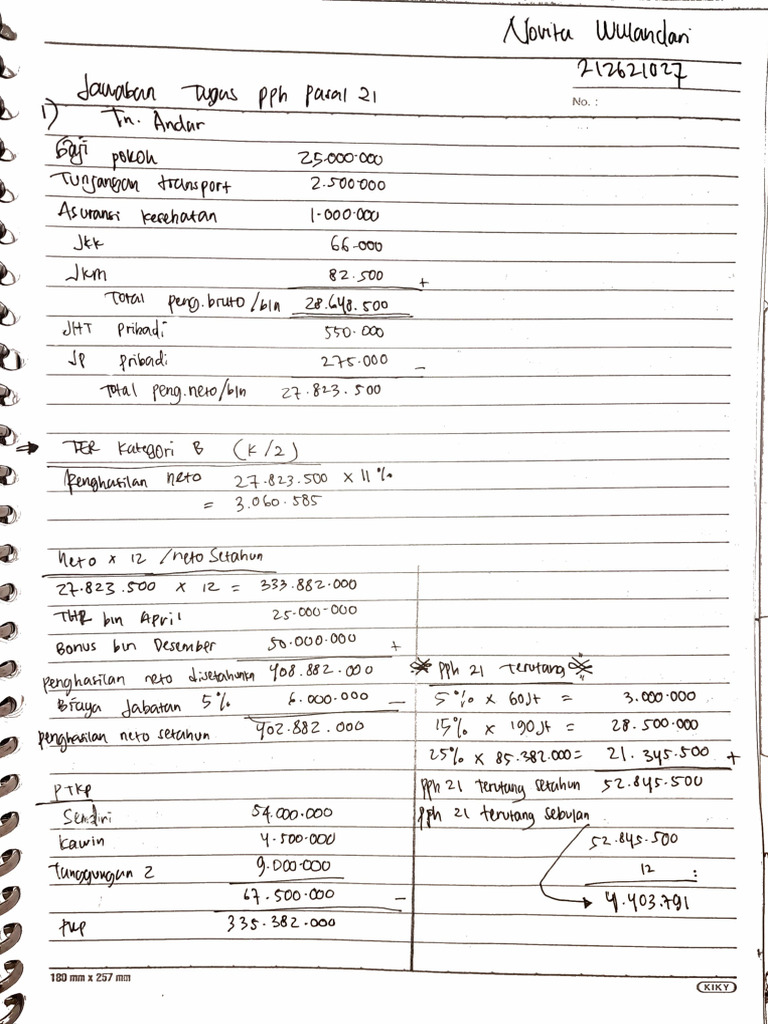 Novita Wulandari
212621027
No. :
Jawaban Tugas pph Pasal 21
1) Tn. Andar
Gaji pokok 25.000.000
Tunjangan transport 2.500.000
Asuransi kesehatan 1.000.000
Jkk 66.000
Jkm 82.500 +
Total peng.bruto/bln 28.648.500
JHT Pribadi 550.000
JP pribadi 275.000 -
Total peng.neto/bln 27.823.500
→ TER Kategori B (K/2)
Penghasilan neto 27.823.500 x 11%
= 3.060.585
Neto x 12 /neto Setahun
27.823.500 x 12 = 333.882.000
THR bln April 25.000.000
Bonus bln Desember 50.000.000 +
penghasilan neto disetahunkn 408.882.000
Biaya Jabatan 5% 6.000.000 -
penghasilan neto setahun 402.882.000
PTKP
Sendiri 54.000.000
Kawin 4.500.000
Tanggungan 2 9.000.000
67.500.000 -
PKP 335.382.000
pph 21 Terutang
5% x 60Jt = 3.000.000
15% x 190Jt = 28.500.000
25% x 85.382.000 = 21.345.500 +
pph 21 terutang setahun 52.845.500
pph 21 terutang sebulan
52.845.500
12 :
→ 4.403.791
180 mm x 257 mm
KIKY